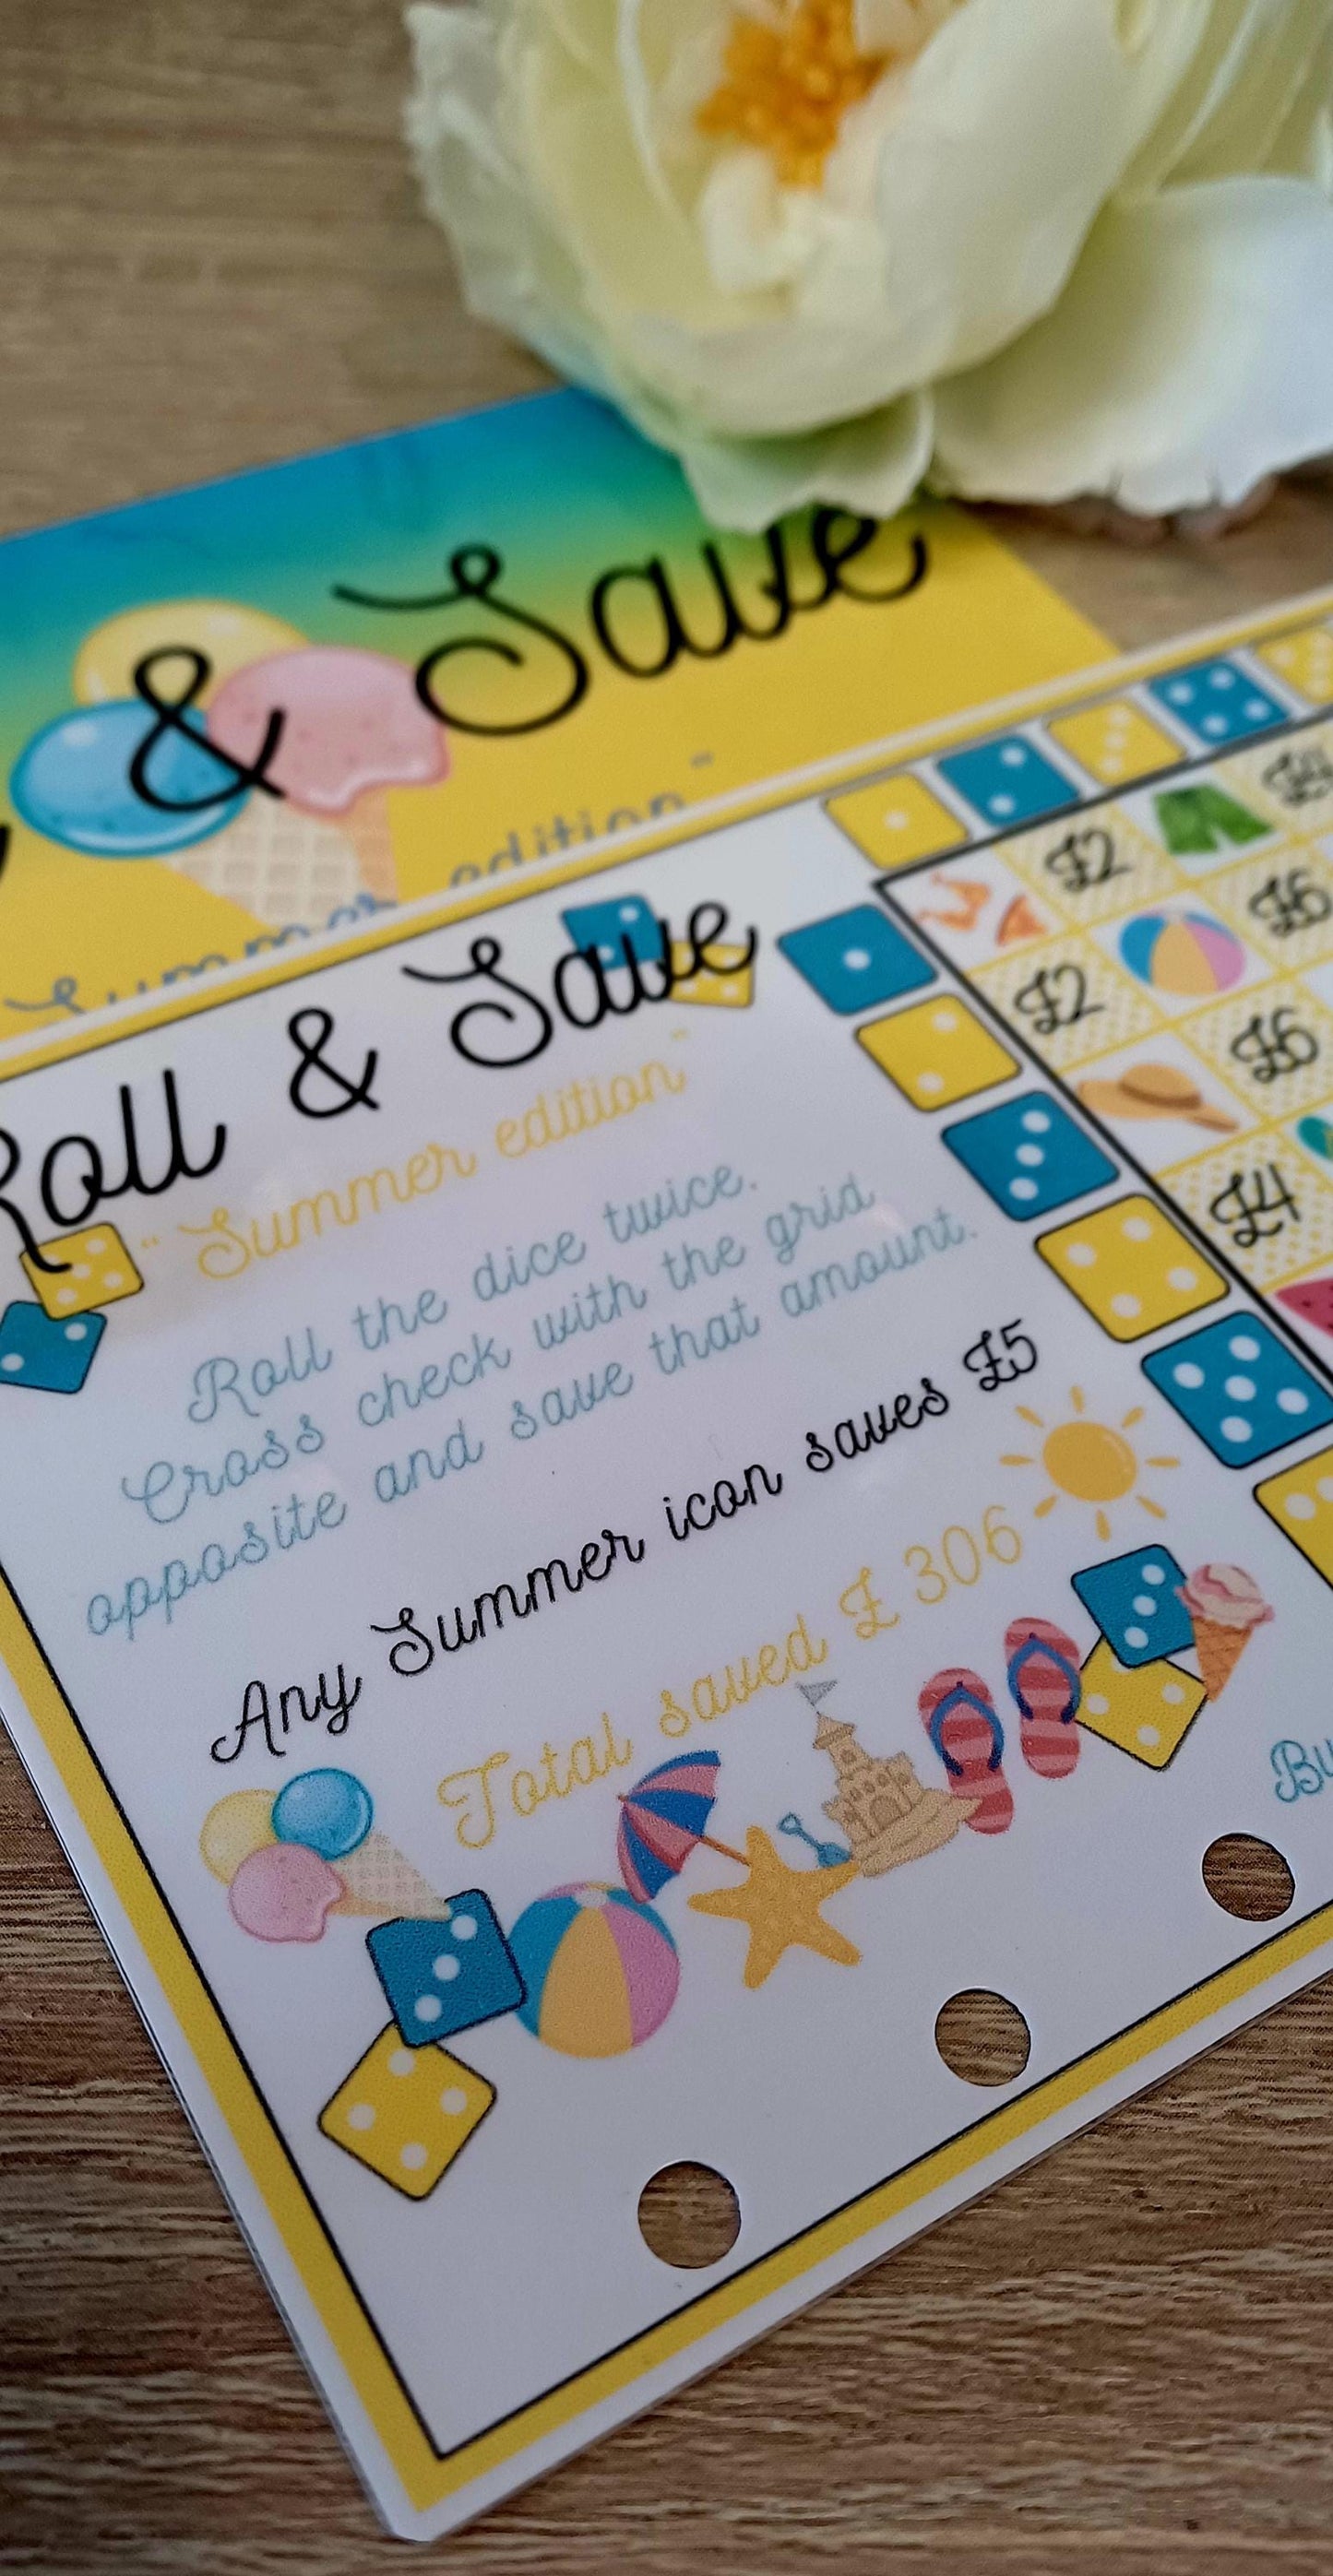 & Save
Summer edition"
Roll & Save
"Summer edition"
Roll the dice twice.
Cross check with the grid
opposite and save that amount.
Any Summer icon saves £5
Total saved £ 306
£2
£2
£6
£6
£4